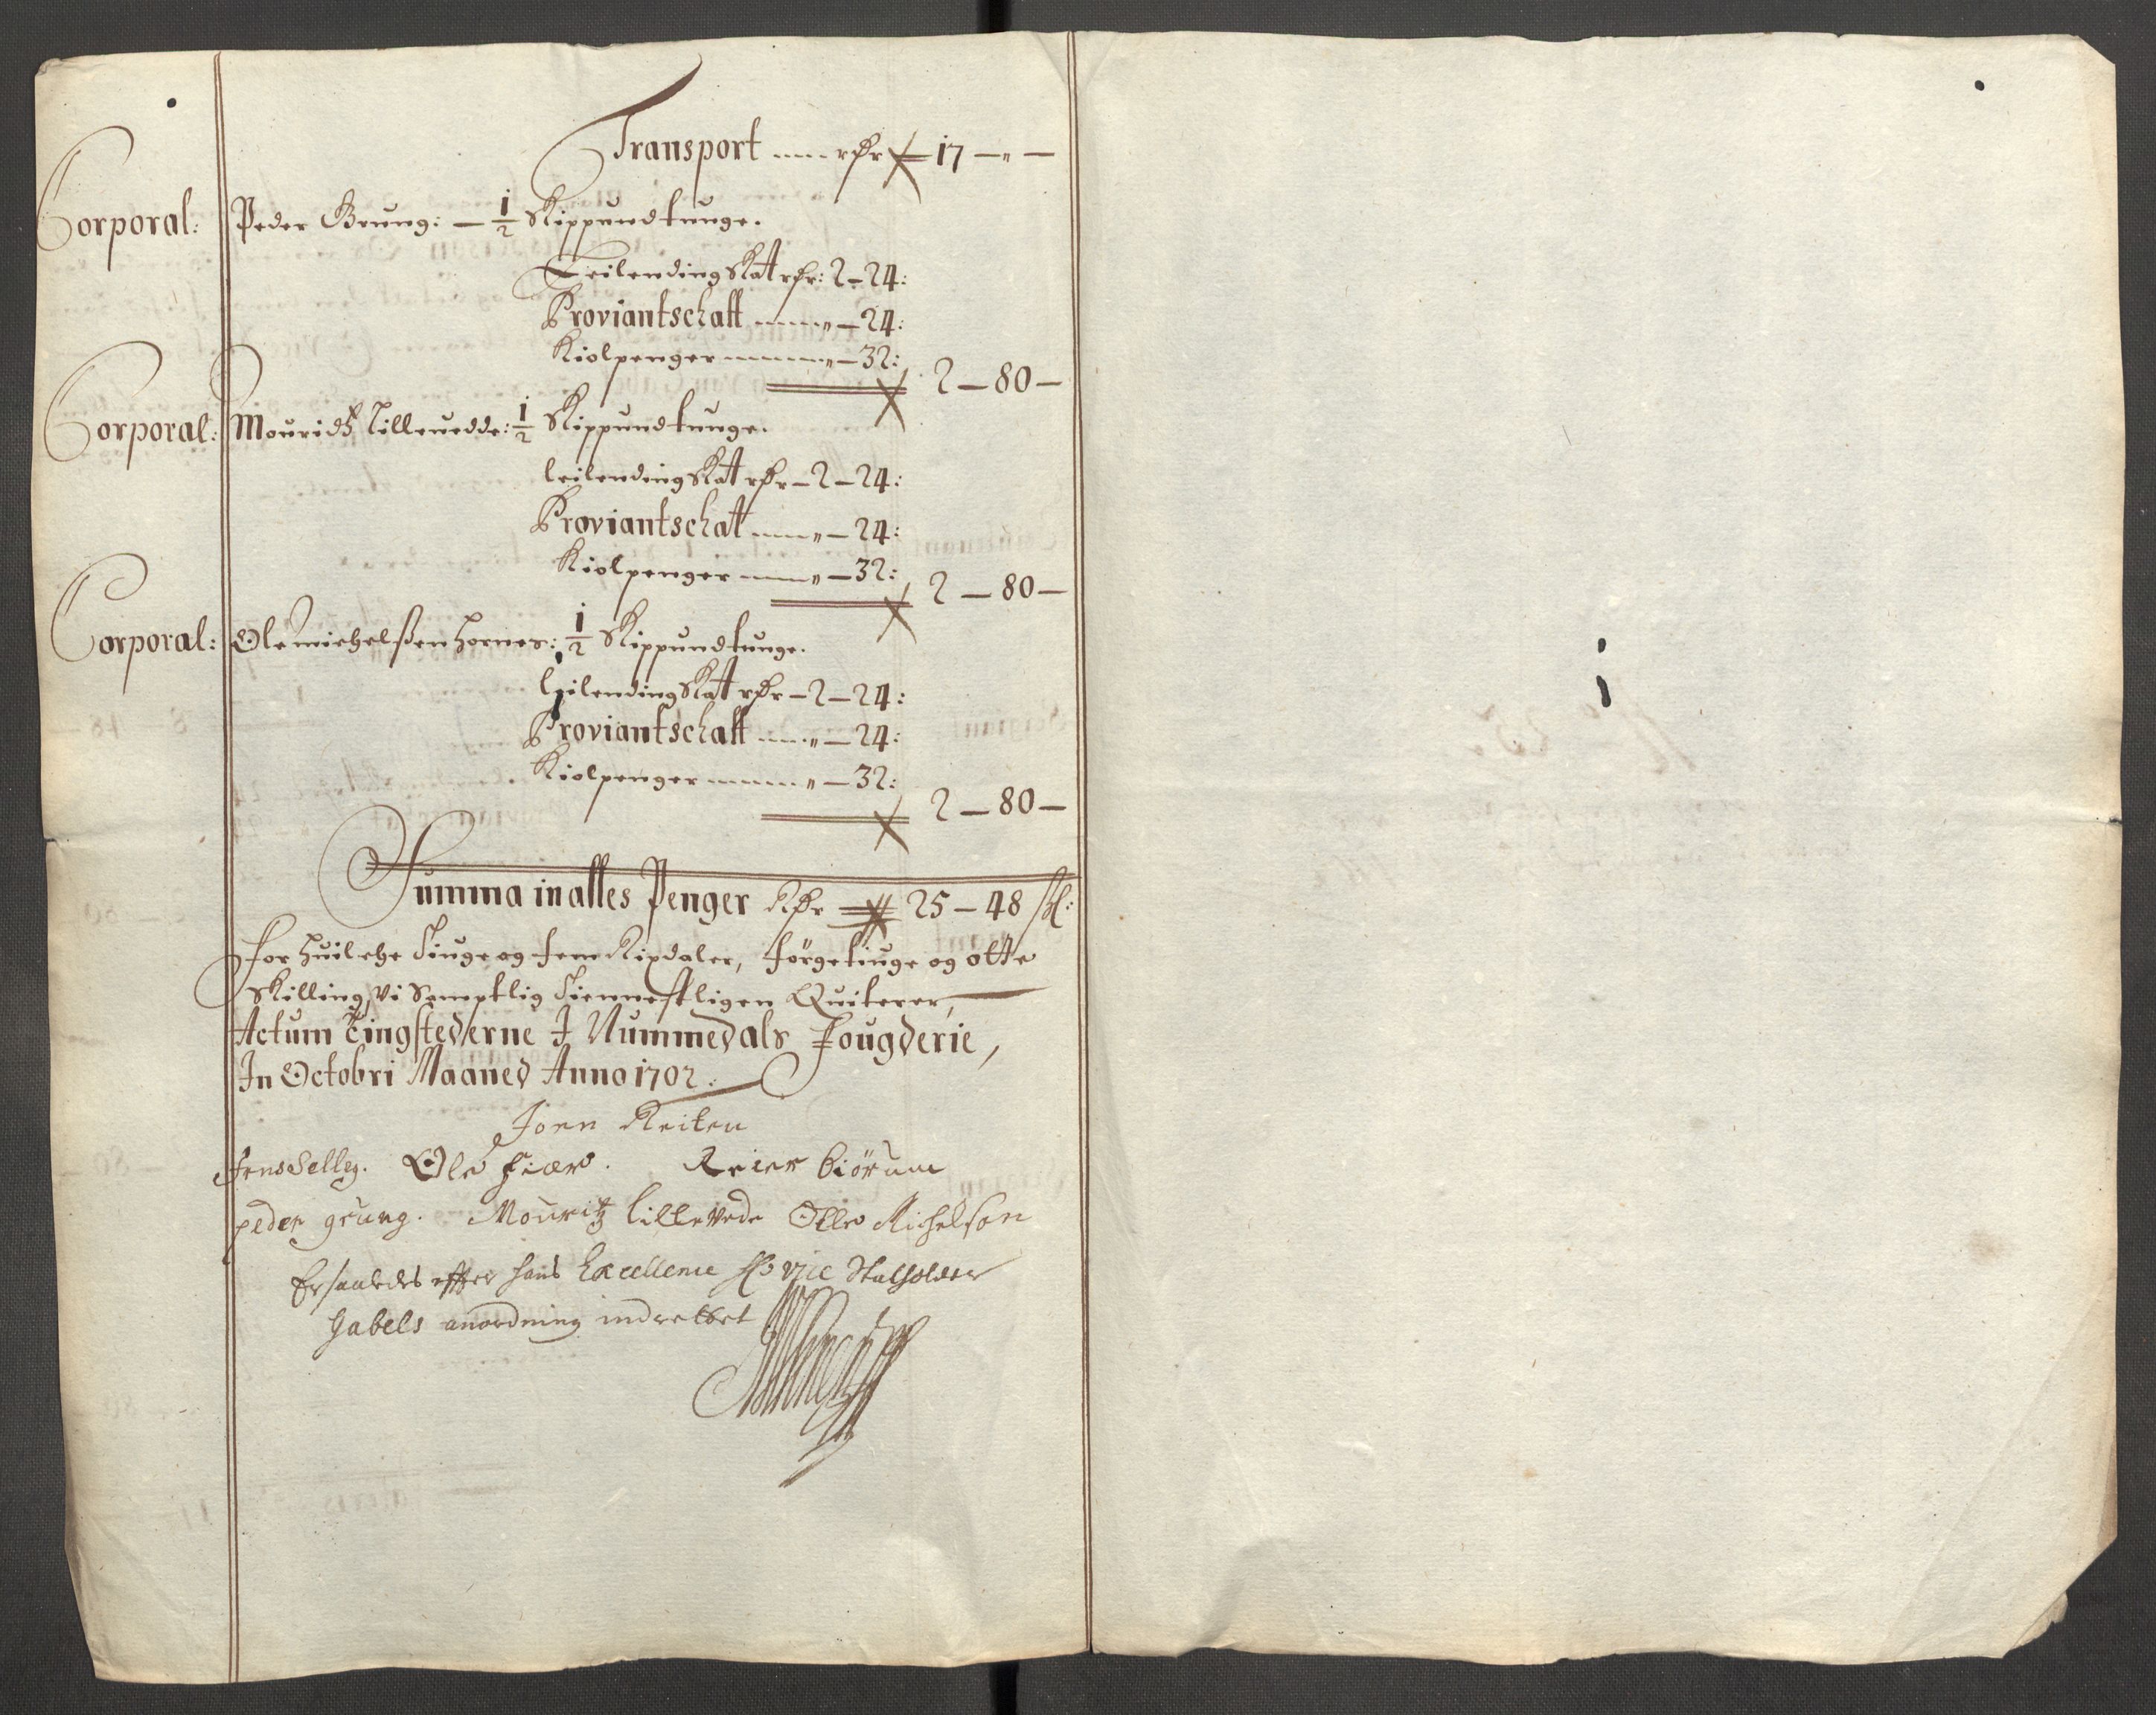 Transport ----- rdr 17 – " –
Corporal: Peder Grung: – 1/2 Skippundtunge.
Leilending Skat rdr: 2 – 24:
Proviantschatt ----- " – 24:
Kiolpenger ------- " – 32:
2 – 80 –
Corporal: Mouridtz Lilleuedde: 1/2 Skippundtunge.
leilending Skat rdr – 2 – 24:
Proviantschatt ---- " – 24:
Kiolpenger ----- " – 32:
2 – 80 –
Corporal: Ole michelssen hornes: 1/2 Skippundtunge.
leilending Skat rdr – 2 – 24:
Proviantschatt ---- " – 24:
Kiolpenger ------ " – 32:
2 – 80 –
Summa in alles Penger Rdr 25 – 48 ſkl:
for huilche Tiuge og fem Rixdaler, förgetiuge og otte
Skilling, Vi Semptlig Tiennestligen Quiterer,
Actum Tingstederne I Nummedals Fougderie,
In Octobri Maaned Anno 1702.
Joen Reiten
Jens Selleg. Ole Fiær. Reier biörum
peder grung. Mouritz lillevede Olle Michelsøn
Er saaledes effter hans Excellence H: vice Statholder
Gabels anordning indrettet